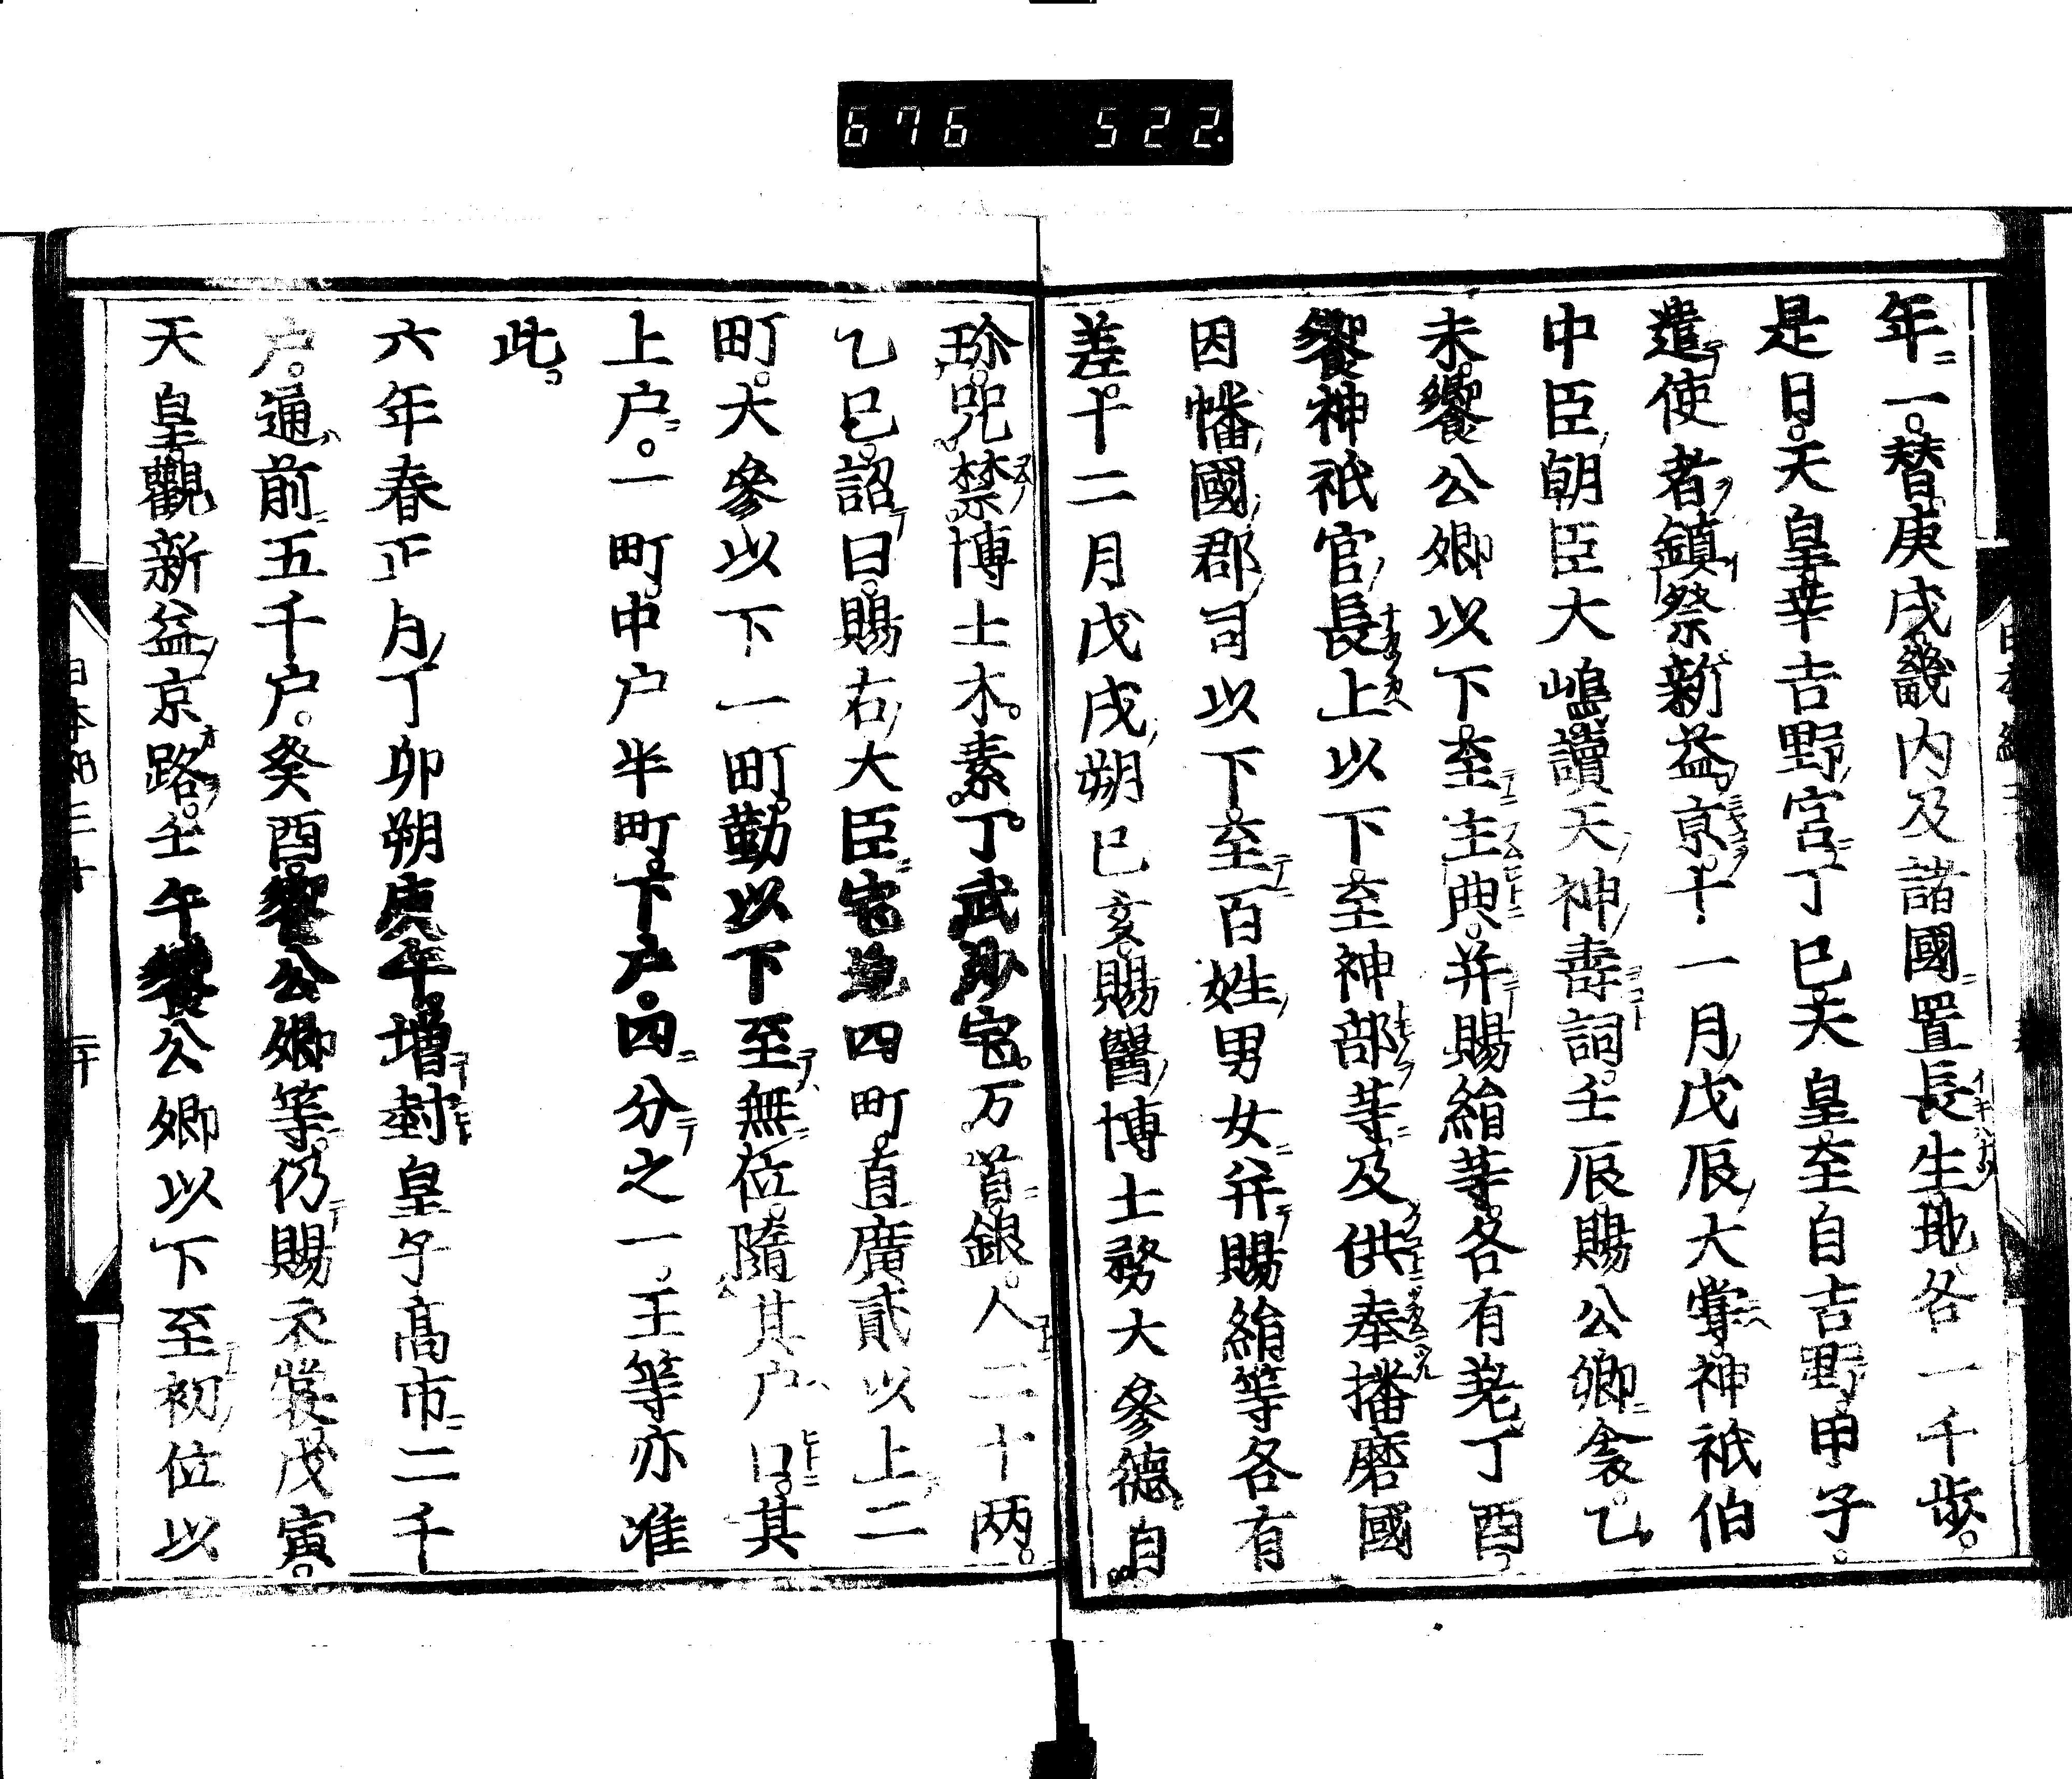 676 522.
年一替庚戌畿内及諸國置長生地各一千歩
是日天皇幸吉野宮丁巳天皇至自吉野甲子
遣使者鎮祭新益京十一月戊辰大嘗神祇伯
中臣朝臣大嶋讀天神壽詞壬辰賜公卿衾乙
未饗公卿以下至主典并賜絹等各有差丁酉
饗神祇官長上以下至神部等及供奉播磨國
因幡國郡司以下至百姓男女并賜絹等各有
差十二月戊戌朔己亥賜醫博士務大參德自
珍咒禁博士木素丁武沙宅万首銀人二十両
乙巳詔曰賜右大臣宅地四町直廣貳以上二
町大參以下一町勤以下至無位隨其戸口其
上戸一町中戸半町下戸四分之一王等亦准
此
六年春正月丁卯朔庚午増封皇子高市二千
戸通前五千戸癸酉饗公卿等仍賜衣裳戊寅
天皇觀新益京路壬午饗公卿以下至初位以
日本紀三十 二十